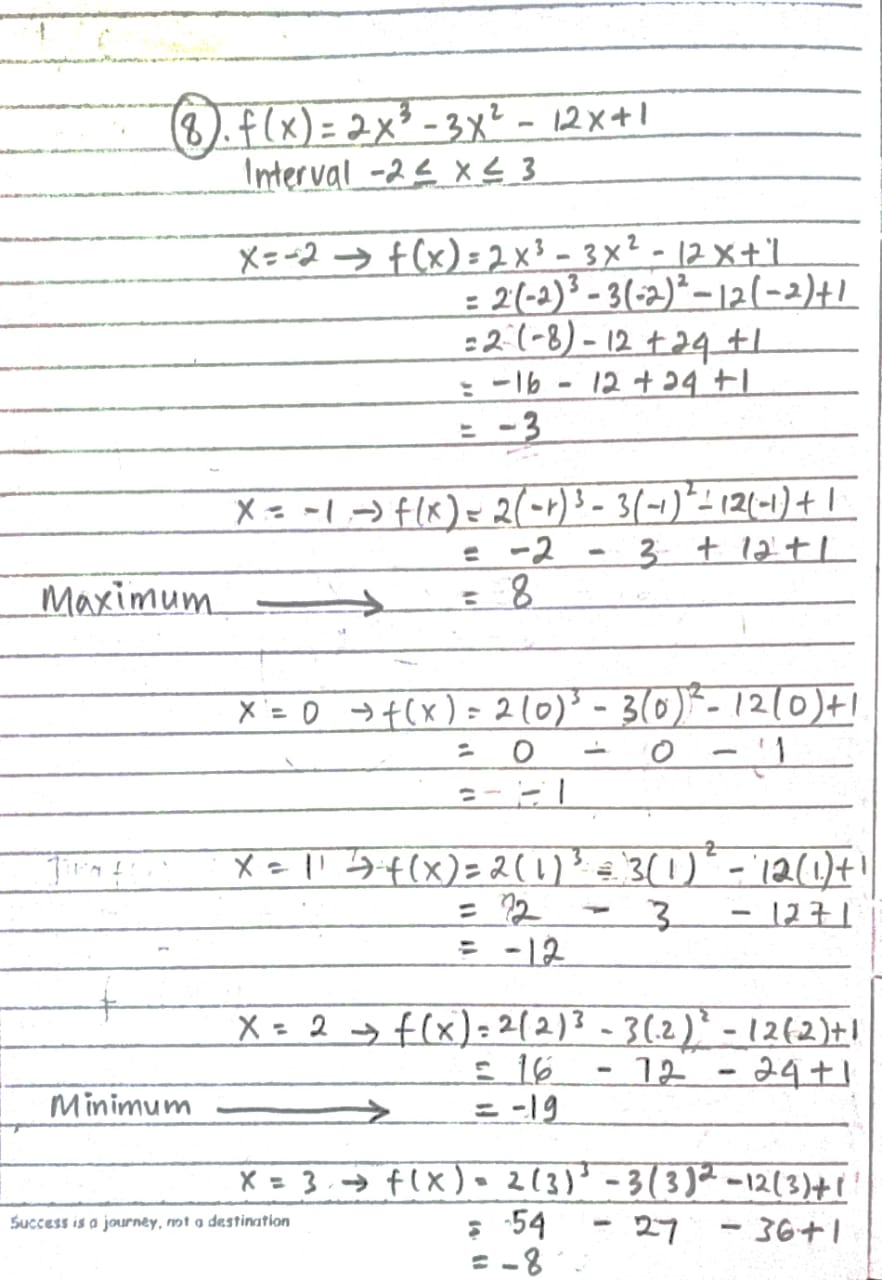 8. f(x) = 2x³ - 3x² - 12x+1
Interval -2 ≤ x ≤ 3
x=-2 → f(x) = 2x³ - 3x² - 12x+1
= 2(-2)³ - 3(-2)² - 12(-2)+1
= 2 (-8) - 12 + 24 +1
= -16 - 12 + 24 +1
= -3
x = -1 → f(x) = 2(-1)³ - 3(-1)² - 12(-1) + 1
= -2 - 3 + 12+1
Maximum → = 8
x = 0 → f(x) = 2(0)³ - 3(0)² - 12(0)+1
= 0 - 0 - 1
= - - 1
x = 1 → f(x) = 2(1)³ = 3(1)² - 12(1)+1
= 2 - 3 - 12+1
= -12
x = 2 → f(x) = 2(2)³ - 3(2)² - 12(2)+1
= 16 - 12 - 24+1
Minimum → = -19
x = 3 → f(x) = 2(3)³ - 3(3)² - 12(3)+1
Success is a journey, not a destination = 54 - 27 - 36+1
= -8